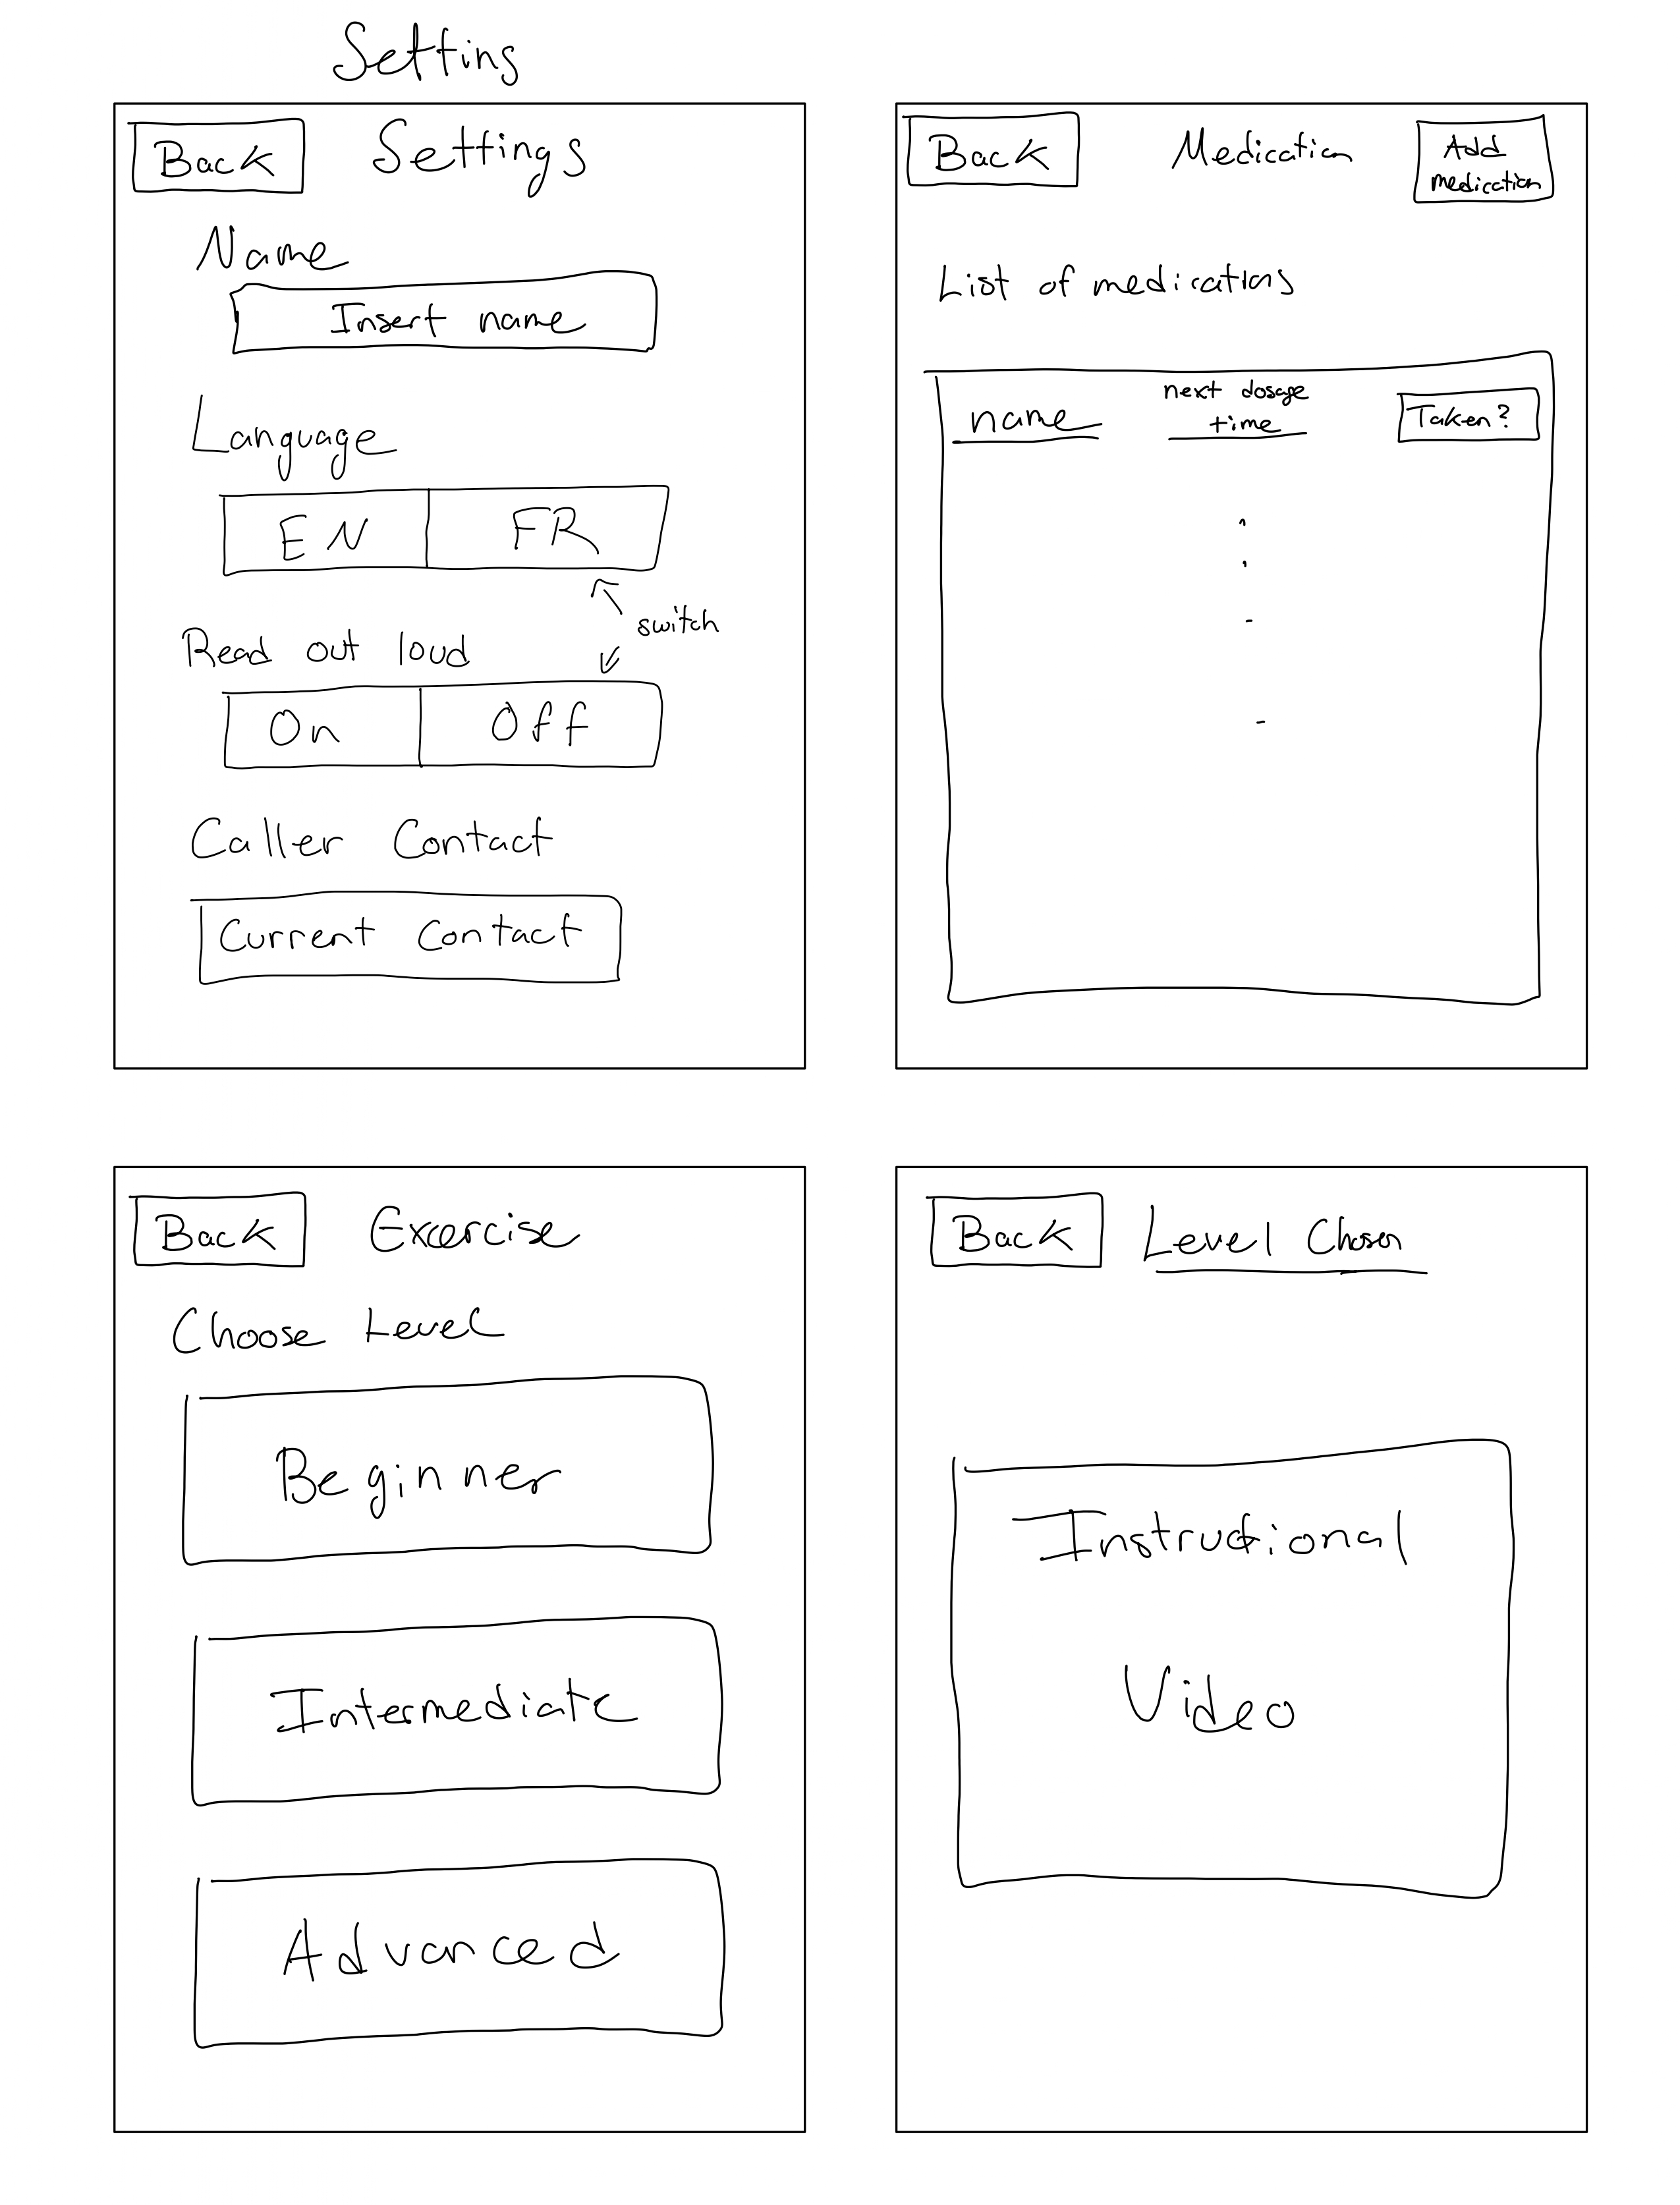 Setting
Back Settings
Name
Insert name
Language
EN FR
switch
Read out loud
On Off
Caller Contact
Current Contact
Back Medication Add medication
List of medications
name next dosage time Taken?
Back Excercise
Choose Level
Beginner
Intermediate
Advanced
Back Level Chosen
Instructional
Video